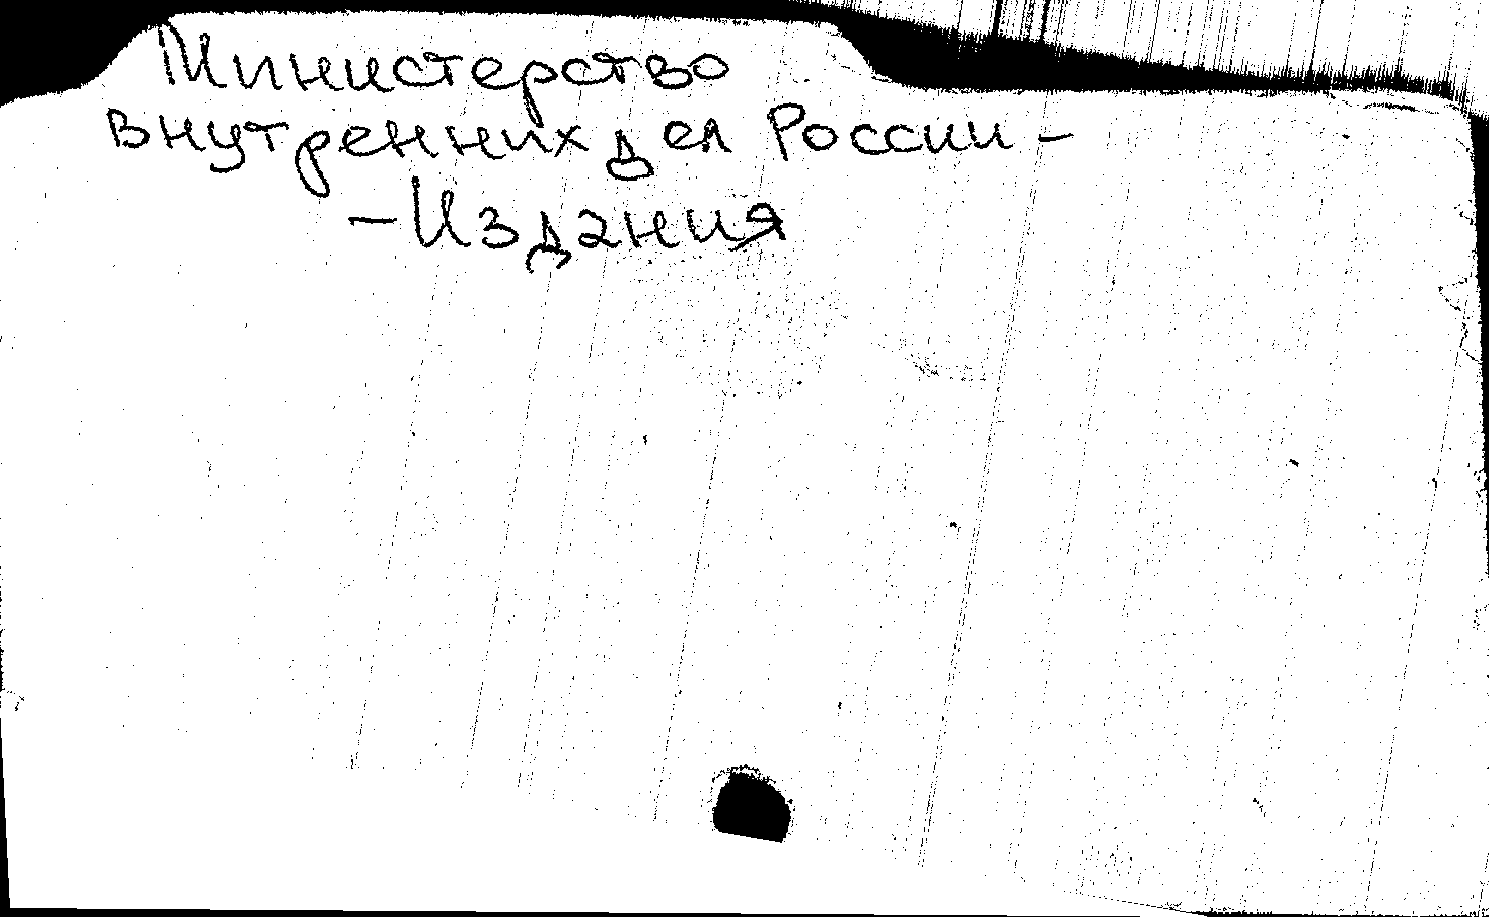 Министерство
внутренних дел России -
- Издания